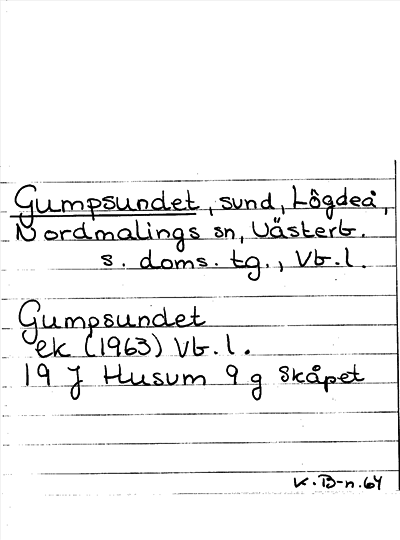 Gumpsundet, sund, Lögdeå,
Nordmalings sn, Västerb.
s. doms. tg., Vb.l.
Gumpsundet
ek (1963) Vb.l.
19 J Husum 9 g Skåpet
K.B-n.64